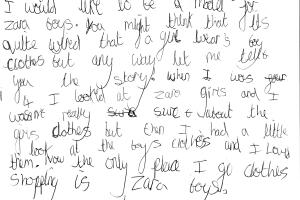 I would like to be a model for
zara boys. You might think that it's
quite weird that a girl wear's boy
clothes but any way let me tell
you the story. when I was
4 I looked at zara girls and I
wasn't really sure about the
girls clothes but then I had a little
look at the boys clothes and I Loved
them. Now the only place I go clothes
Shopping is Zara boys.